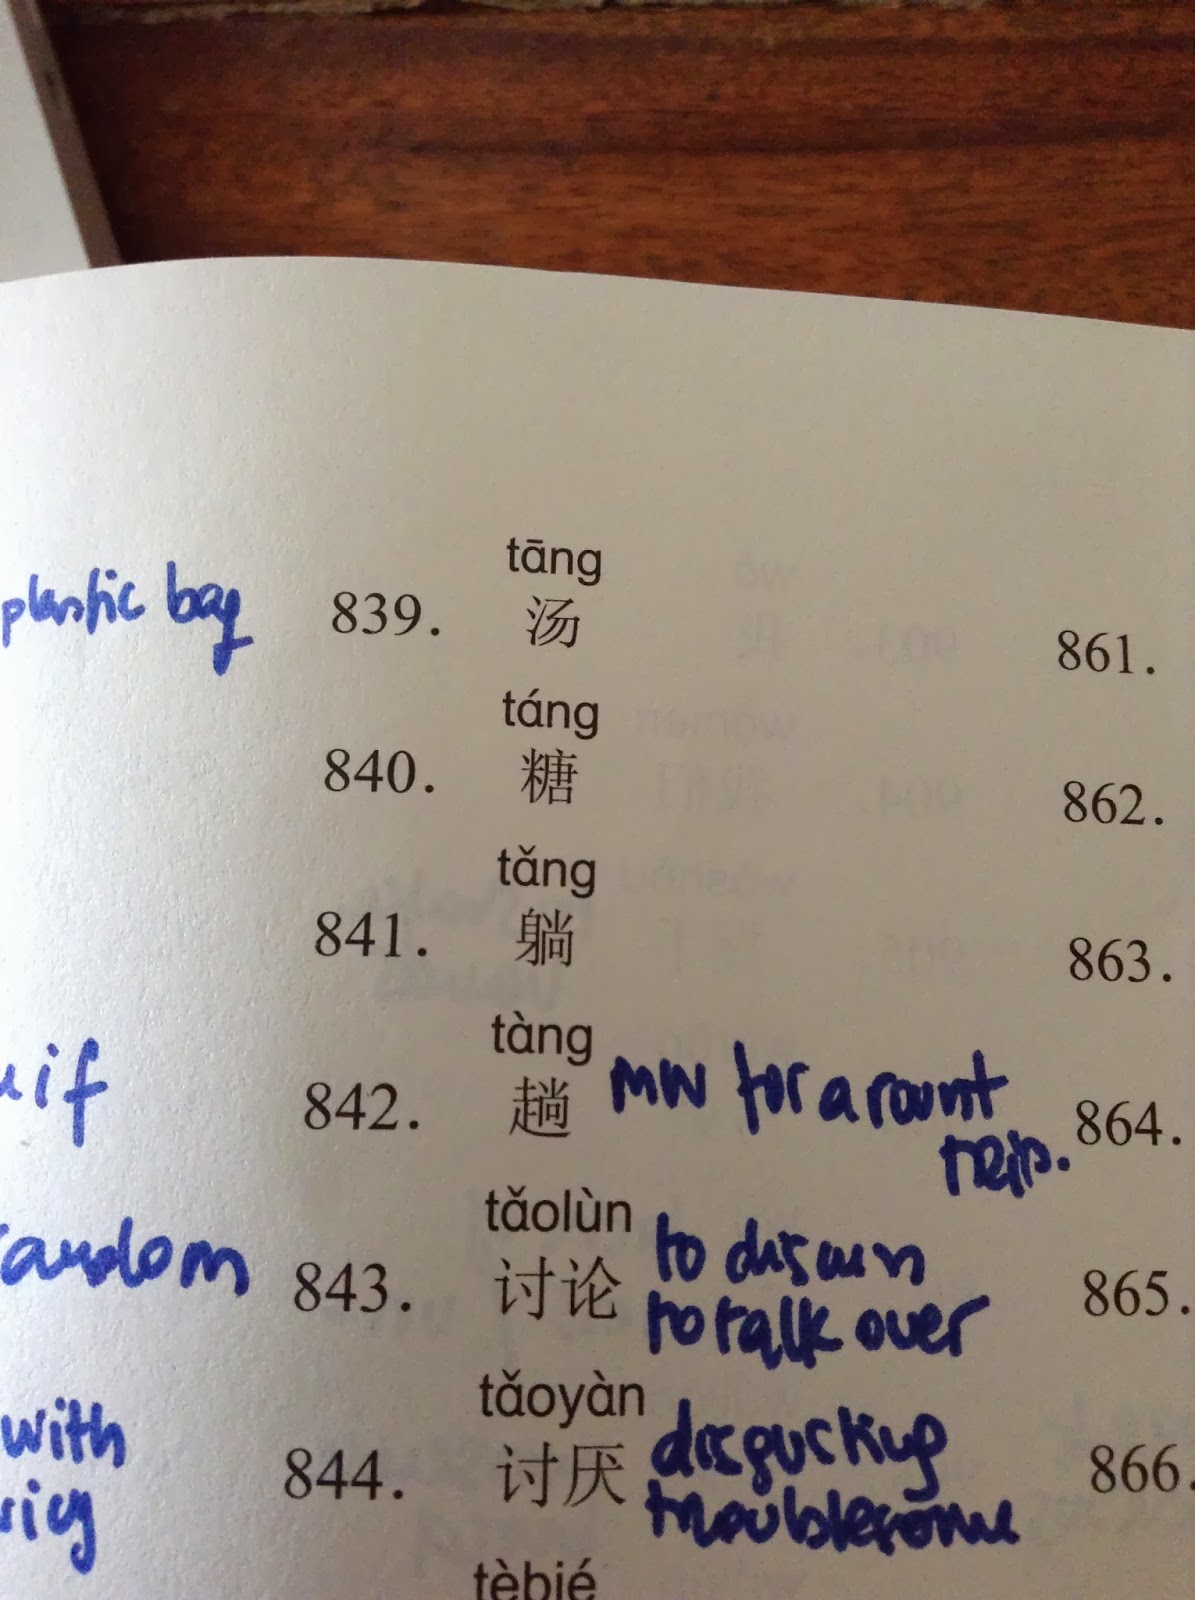 tāng
plastic bag 839. 汤 861.
táng
840. 糖 862.
tǎng
841. 躺 863.
tàng
if 842. 趟 mw for a rount 864.
trip.
tǎolùn
random 843. 讨论 to discuss 865.
to talk over
tǎoyàn
with 844. 讨厌 disgusting 866.
troublesome
tèbié